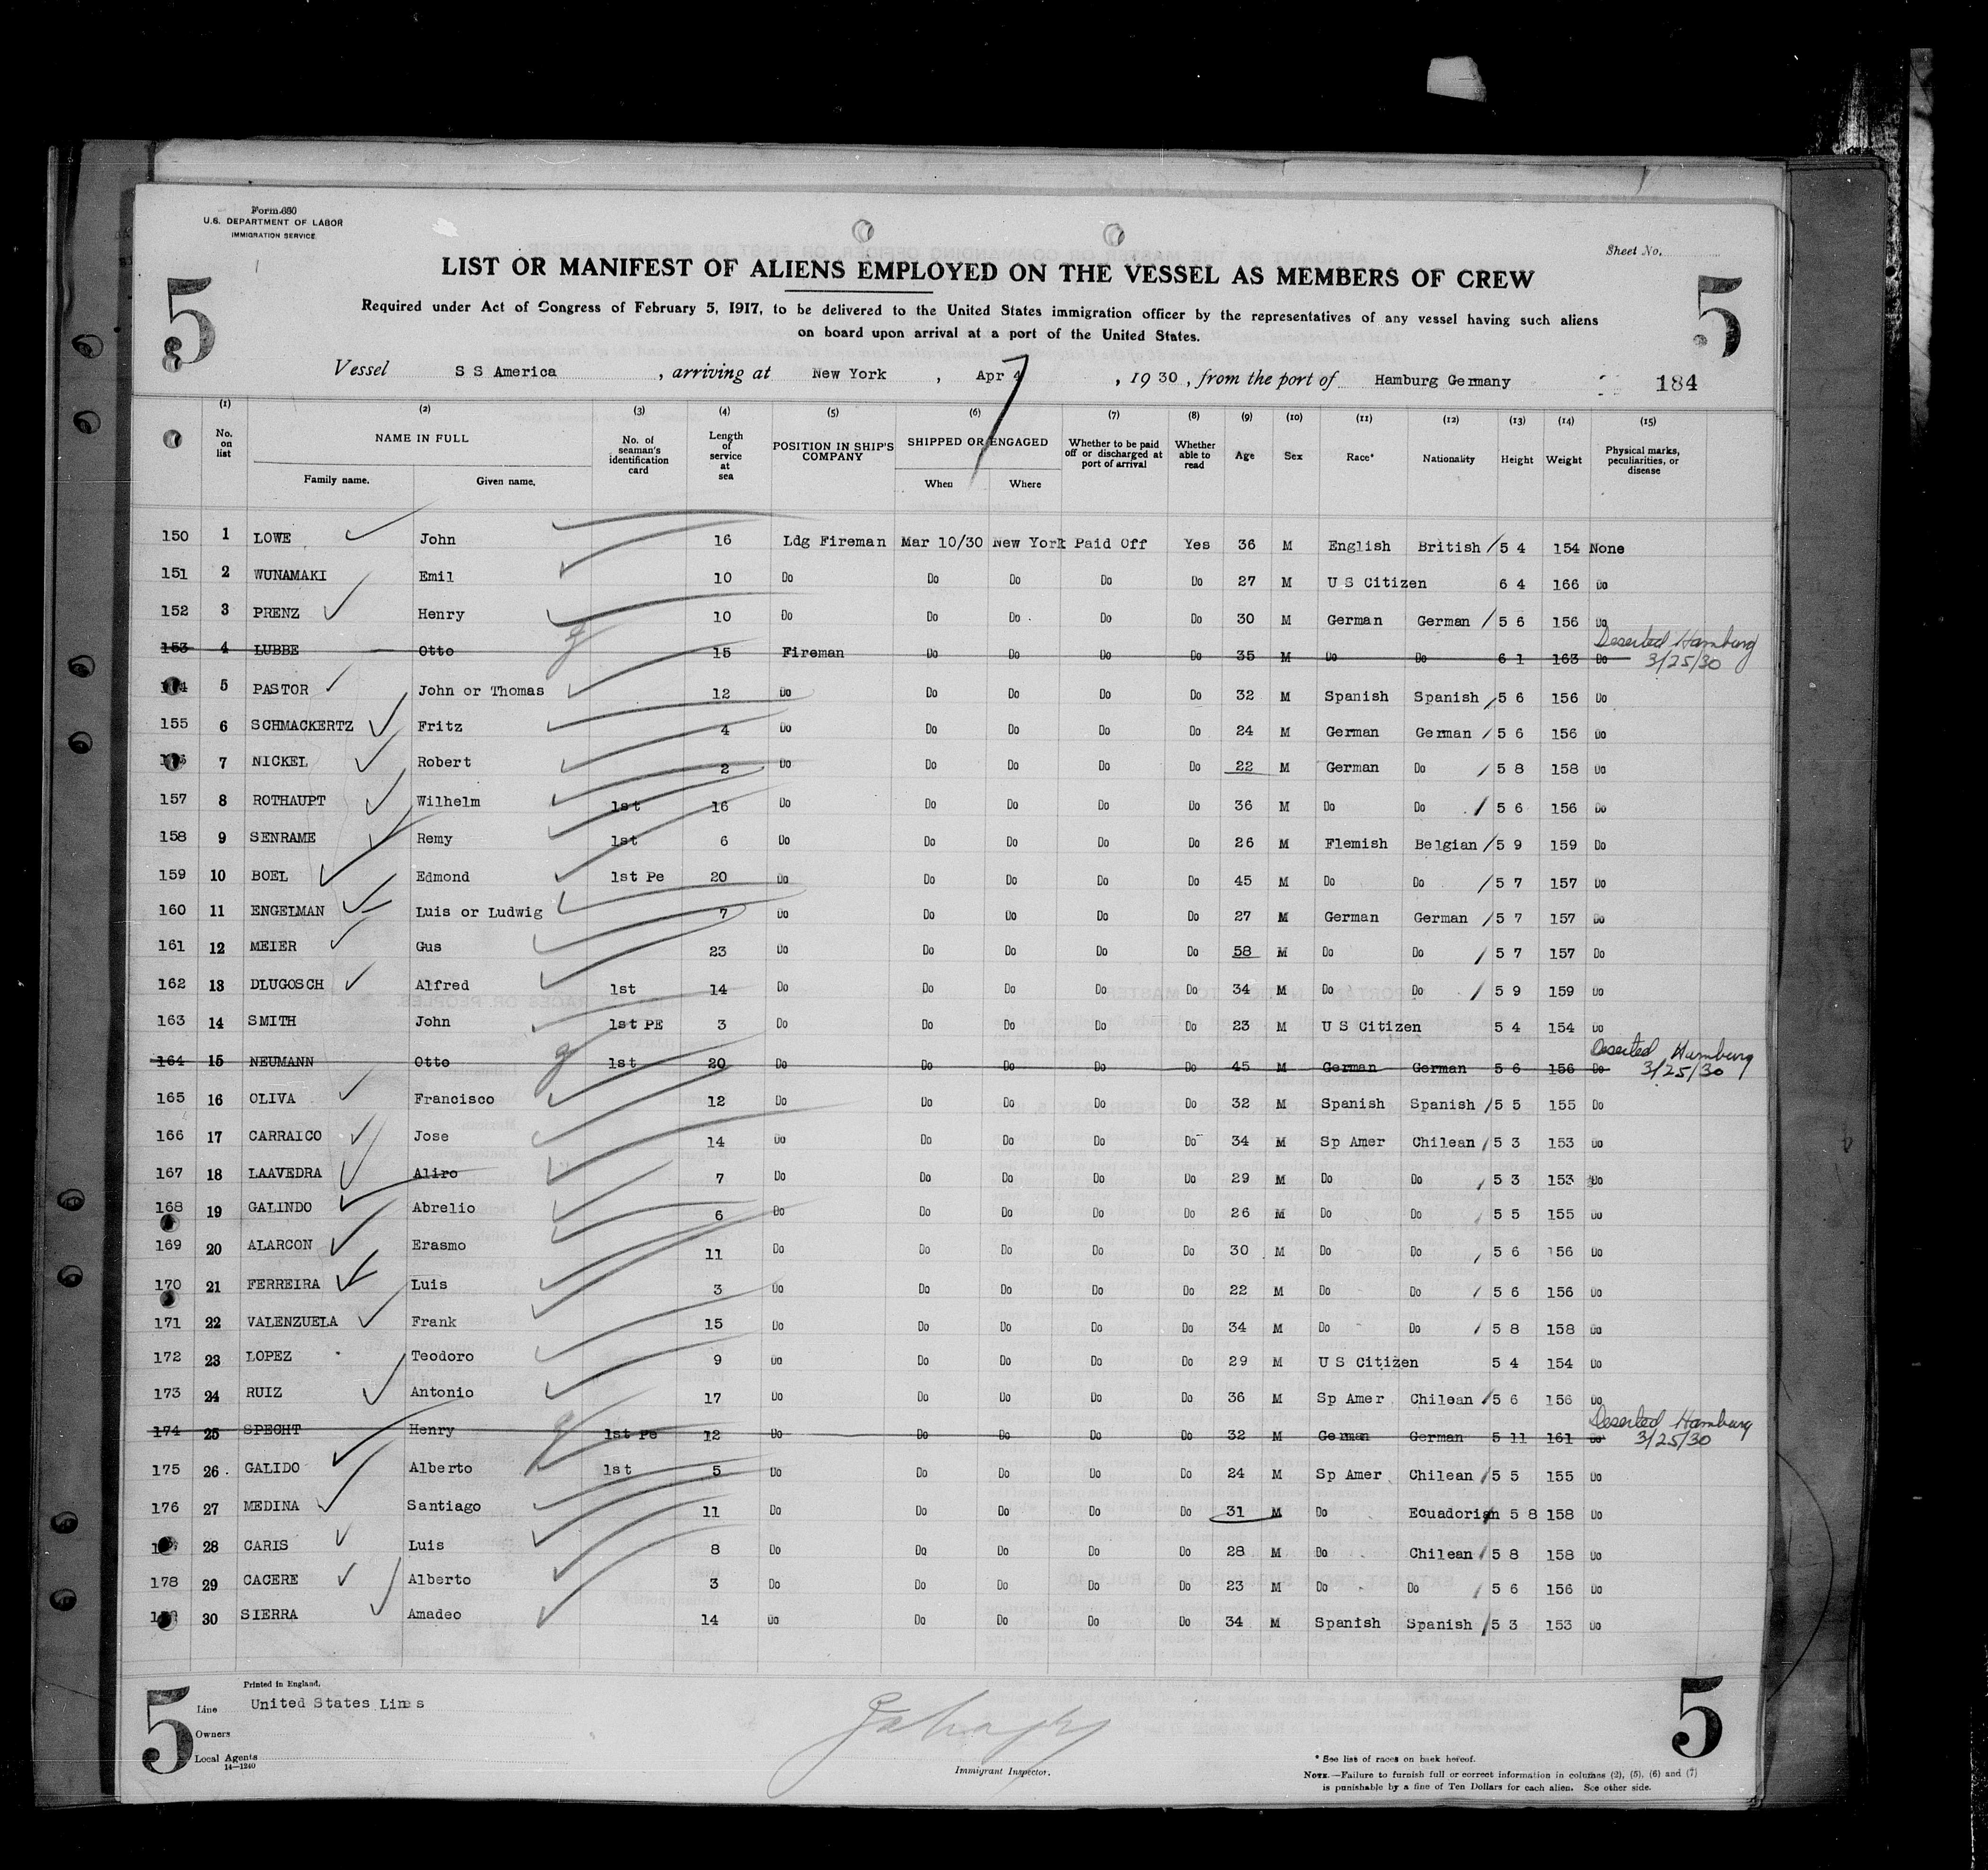 Form 680
U.S. DEPARTMENT OF LABOR
IMMIGRATION SERVICE
Sheet No.
5 5
LIST OR MANIFEST OF ALIENS EMPLOYED ON THE VESSEL AS MEMBERS OF CREW
Required under Act of Congress of February 5, 1917, to be delivered to the United States immigration officer by the representatives of any vessel having such aliens
on board upon arrival at a port of the United States.
Vessel S S America , arriving at New York , Apr 4 7 , 19 30 , from the port of Hamburg Germany 184
(1) (2) (3) (4) (5) (6) (7) (8) (9) (10) (11) (12) (13) (14) (15)
No. on list NAME IN FULL No. of seaman's identification card Length of service at sea POSITION IN SHIP'S COMPANY SHIPPED OR ENGAGED Whether to be paid off or discharged at port of arrival Whether able to read Age Sex Race* Nationality Height Weight Physical marks, peculiarities, or disease
Family name. Given name. When Where
150 1 LOWE John 16 Ldg Fireman Mar 10/30 New York Paid Off Yes 36 M English British 5 4 154 None
151 2 WUNAMAKI Emil 10 Do Do Do Do Do 27 M U S Citizen 6 4 166 Do
152 3 PRENZ Henry 10 Do Do Do Do Do 30 M German German 5 6 156 Do
153 4 LUBBE Otto 15 Fireman Do Do Do Do 35 M Do Do 6 1 163 Do Deserted Hamburg 3/25/30
5 PASTOR John or Thomas 12 Do Do Do Do Do 32 M Spanish Spanish 5 6 156 Do
155 6 SCHMACKERTZ Fritz 4 Do Do Do Do Do 24 M German German 5 6 156 Do
7 NICKEL Robert 2 Do Do Do Do Do 22 M German Do 5 8 158 Do
157 8 ROTHAUPT Wilhelm 1st 16 Do Do Do Do Do 36 M Do Do 5 6 156 Do
158 9 SENRAME Remy 1st 6 Do Do Do Do Do 26 M Flemish Belgian 5 9 159 Do
159 10 BOEL Edmond 1st Pe 20 Do Do Do Do Do 45 M Do Do 5 7 157 Do
160 11 ENGELMAN Luis or Ludwig 7 Do Do Do Do Do 27 M German German 5 7 157 Do
161 12 MEIER Gus 23 Do Do Do Do Do 58 M Do Do 5 7 157 Do
162 13 DLUGOSCH Alfred 1st 14 Do Do Do Do Do 34 M Do Do 5 9 159 Do
163 14 SMITH John 1st PE 3 Do Do Do Do Do 23 M U S Citizen 5 4 154 Do
164 15 NEUMANN Otto 1st 20 Do Do Do Do Do 45 M German German 5 6 156 Do Deserted Hamburg 3/25/30
165 16 OLIVA Francisco 12 Do Do Do Do Do 32 M Spanish Spanish 5 5 155 Do
166 17 CARRAICO Jose 14 Do Do Do Do Do 34 M Sp Amer Chilean 5 3 153 Do
167 18 LAAVEDRA Aliro 7 Do Do Do Do Do 29 M Do Do 5 3 153 Do
168 19 GALINDO Abrelio 6 Do Do Do Do Do 26 M Do Do 5 5 155 Do
169 20 ALARCON Erasmo 11 Do Do Do Do Do 30 M Do Do 5 6 156 Do
170 21 FERREIRA Luis 3 Do Do Do Do Do 22 M Do Do 5 6 156 Do
171 22 VALENZUELA Frank 15 Do Do Do Do Do 34 M Do Do 5 8 158 Do
172 23 LOPEZ Teodoro 9 Do Do Do Do Do 29 M U S Citizen 5 4 154 Do
173 24 RUIZ Antonio 17 Do Do Do Do Do 36 M Sp Amer Chilean 5 6 156 Do
174 25 SPECHT Henry 1st Pe 12 Do Do Do Do Do 32 M German German 5 11 161 Do Deserted Hamburg 3/25/30
175 26 GALIDO Alberto 1st 5 Do Do Do Do Do 24 M Sp Amer Chilean 5 5 155 Do
176 27 MEDINA Santiago 11 Do Do Do Do Do 31 M Do Ecuadorian 5 8 158 Do
28 CARIS Luis 8 Do Do Do Do Do 28 M Do Chilean 5 8 158 Do
178 29 CACERE Alberto 3 Do Do Do Do Do 23 M Do Do 5 6 156 Do
30 SIERRA Amadeo 14 Do Do Do Do Do 34 M Spanish Spanish 5 3 153 Do
Printed in England.
5 5
Line United States Lines
Owners
Local Agents
14—1240
Immigrant Inspector.
* See list of races on back hereof.
NOTE.—Failure to furnish full or correct information in columns (2), (5), (6) and (7)
is punishable by a fine of Ten Dollars for each alien. See other side.